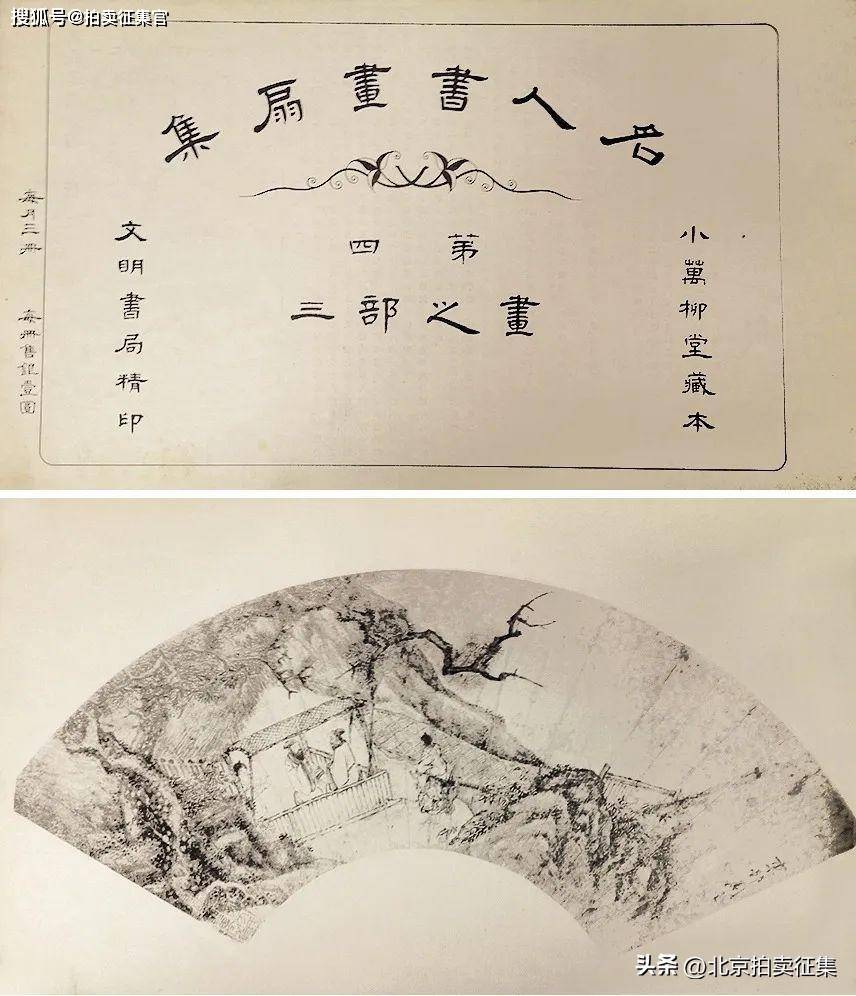 搜狐号@拍卖征集官
名人書畫扇集
小萬柳堂藏本
第四
畫之部三
文明書局精印
每月三冊 每冊售銀壹圓
头条 @北京拍卖征集